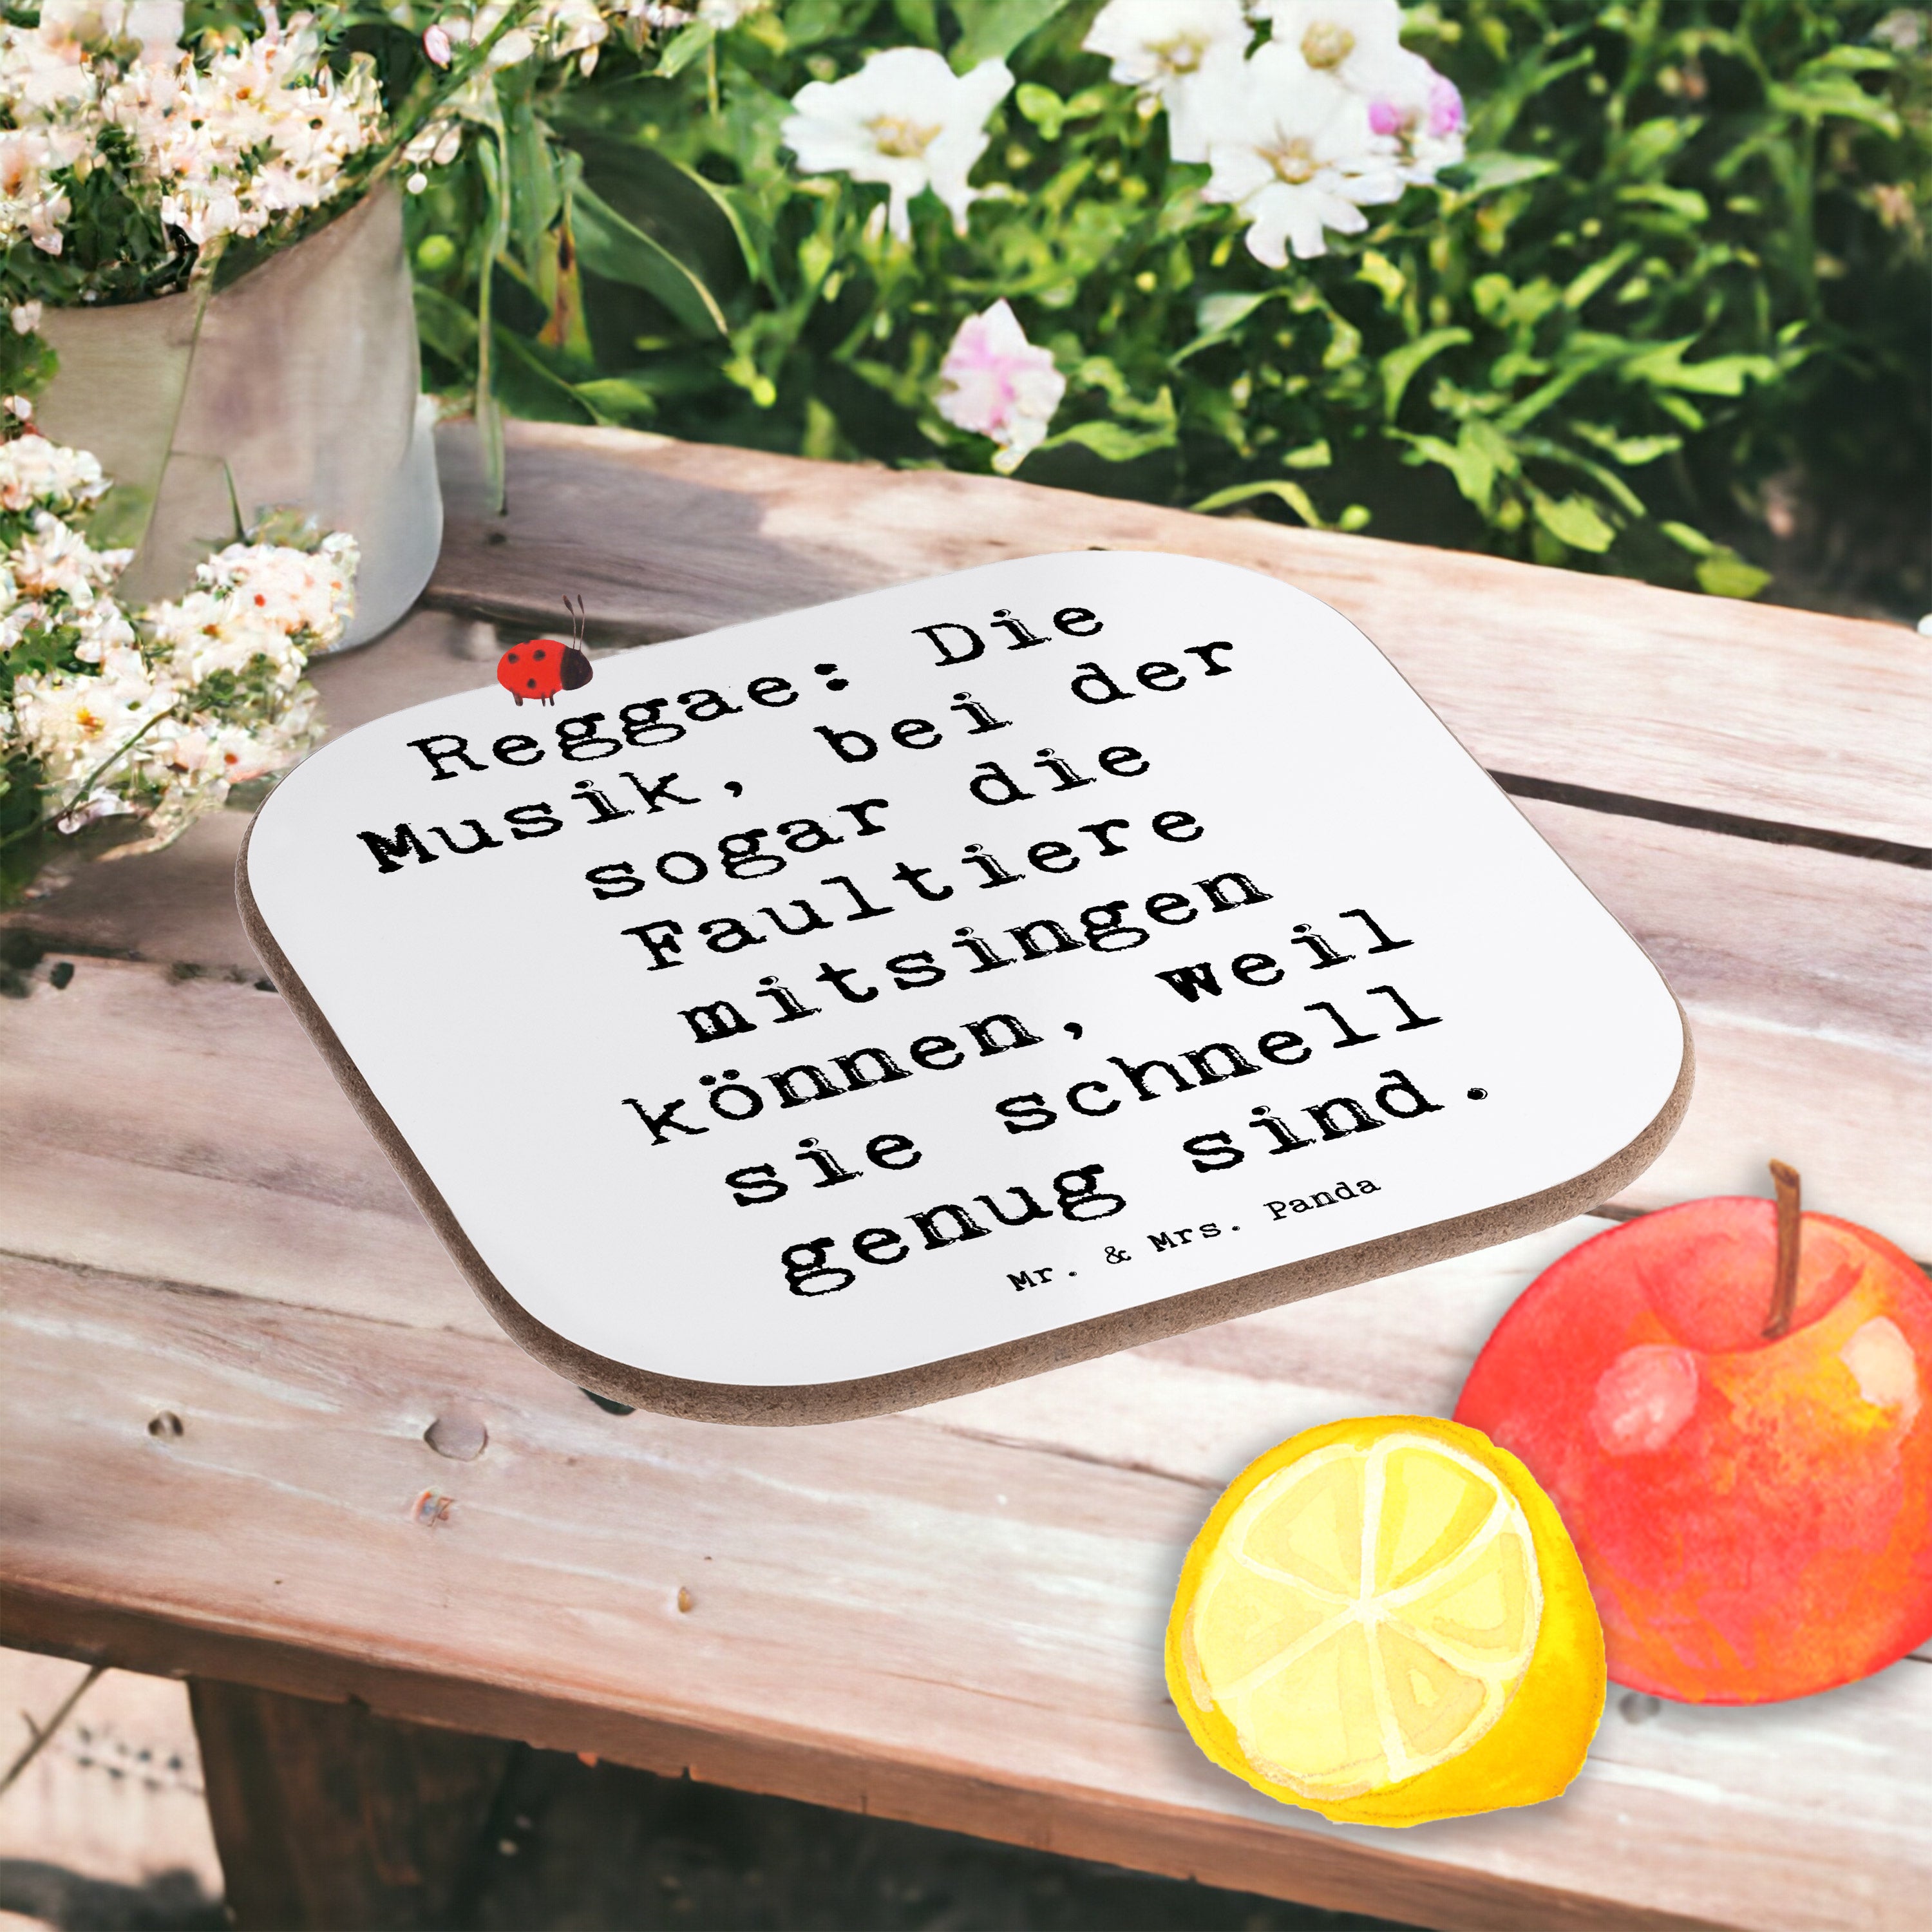 Reggae: Die
Musik, bei der
sogar die
Faultiere
mitsingen
können, weil
sie schnell
genug sind.
Mr. & Mrs. Panda